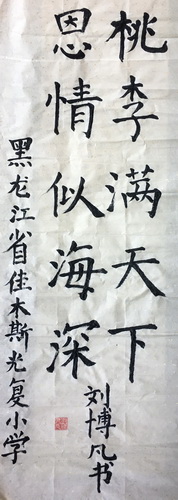 桃李满天下
恩情似海深
刘博凡书
黑龙江省佳木斯光复小学